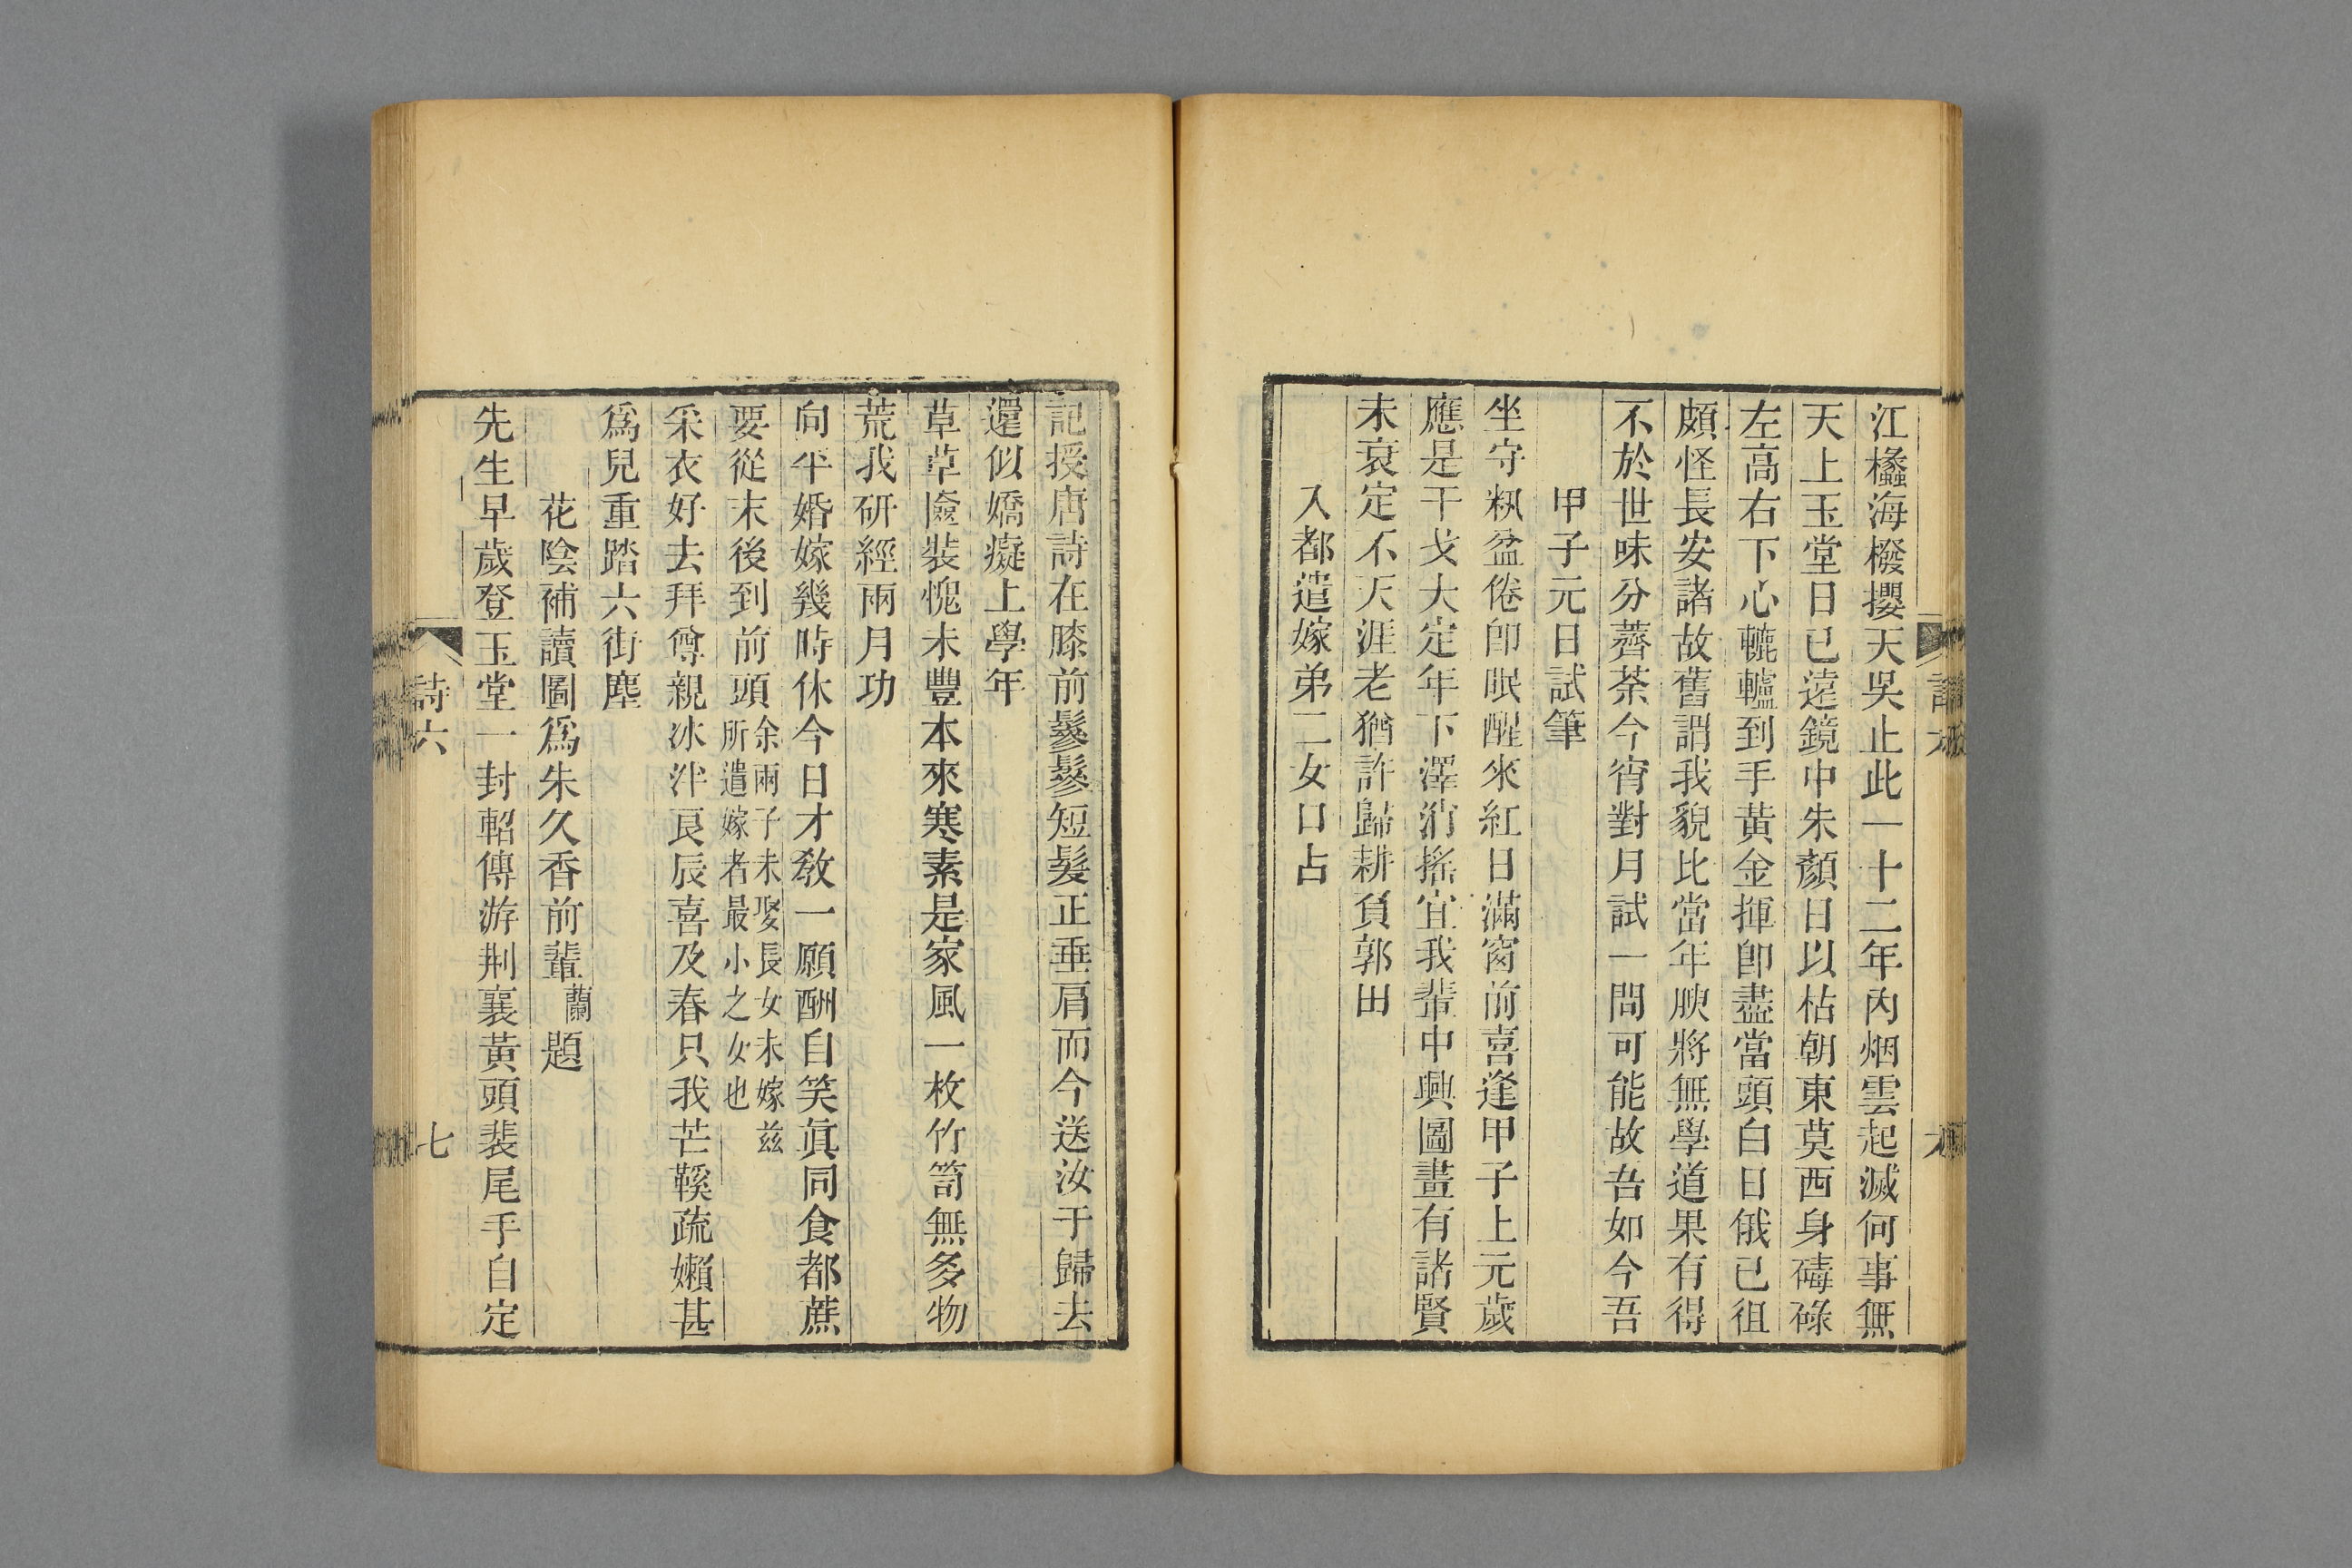 江蟸海樧攖天吳止此一十二年內烟雲起滅何事無
天上玉堂日已遠鏡中朱顏日以枯朝東莫西身碡碌
左高右下心轆轤到手黃金揮卽盡當頭白日俄已徂
頗怪長安諸故舊謂我貌比當年腴將無學道果有得
不於世味分薺荼今宵對月試一問可能故吾如今吾
甲子元日試筆
坐守粌盆倦卽眠醒來紅日滿窗前喜逢甲子上元歲
應是干戈大定年下澤消搖宜我輩中興圖畫有諸賢
未衰定不天涯老猶許歸耕負郭田
入都遣嫁弟二女口占
記授唐詩在膝前鬖鬖短髮正垂肩而今送汝于歸去
還似嬌癡上學年
草草匳裝愧未豐本來寒素是家風一枚竹笥無多物
荒我研經兩月功
向平婚嫁幾時休今日才敎一願酬自笑眞同食都蔗
要從末後到前頭余兩子未娶長女未嫁茲所遣嫁者最小之女也
采衣好去拜尊親冰泮良辰喜及春只我芒鞵疏嬾甚
爲兒重踏六街塵
花陰補讀圖爲朱久香前輩蘭題
先生早歲登玉堂一封軺傳游荆襄黃頭裴尾手自定
詩六
七